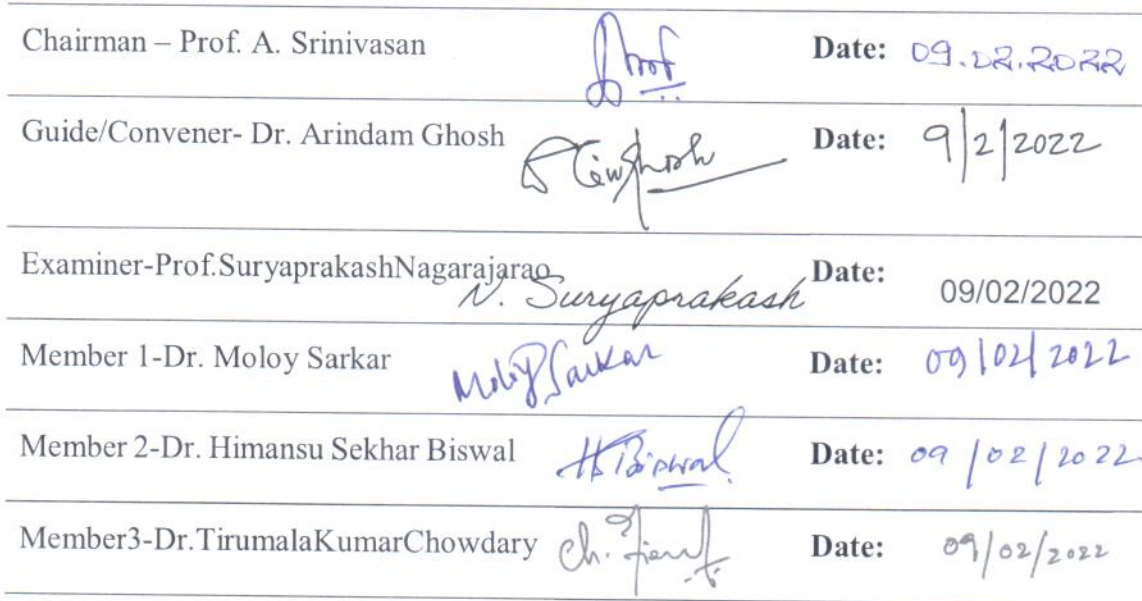 Chairman – Prof. A. Srinivasan Date: 09.02.2022
Guide/Convener- Dr. Arindam Ghosh Date: 9/2/2022
Examiner-Prof.SuryaprakashNagarajarao N. Suryaprakash Date: 09/02/2022
Member 1-Dr. Moloy Sarkar Moloy Sarkar Date: 09/02/2022
Member 2-Dr. Himansu Sekhar Biswal HBiswal Date: 09/02/2022
Member3-Dr.TirumalaKumarChowdary Date: 09/02/2022